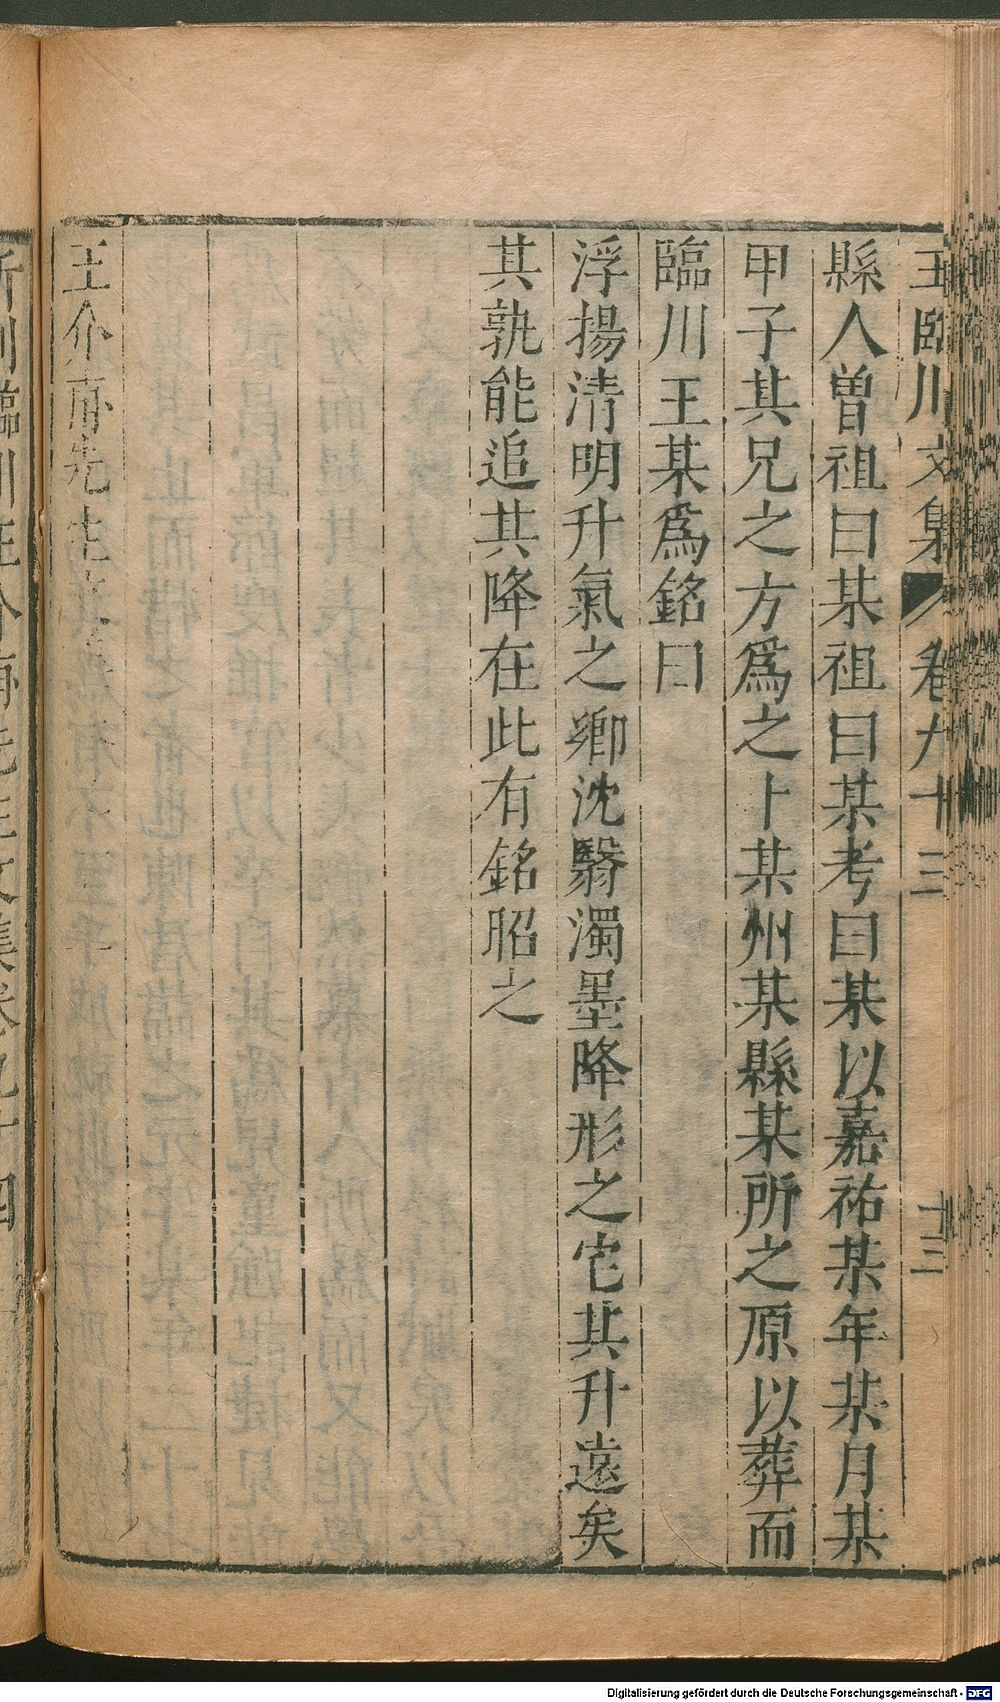 王臨川文集 卷九十三 十三
縣人曾祖曰某祖曰某考曰某以嘉祐某年某月某
甲子其兄之方爲之卜某州某縣某所之原以葬而
臨川王某爲銘曰
浮揚清明升氣之卿沈翳濁墨降形之宅其升遠矣
其孰能追其降在此有銘昭之
王介甫先生
新刊臨川王介甫先生文集卷九十四
Digitalisierung gefördert durch die Deutsche Forschungsgemeinschaft - DFG